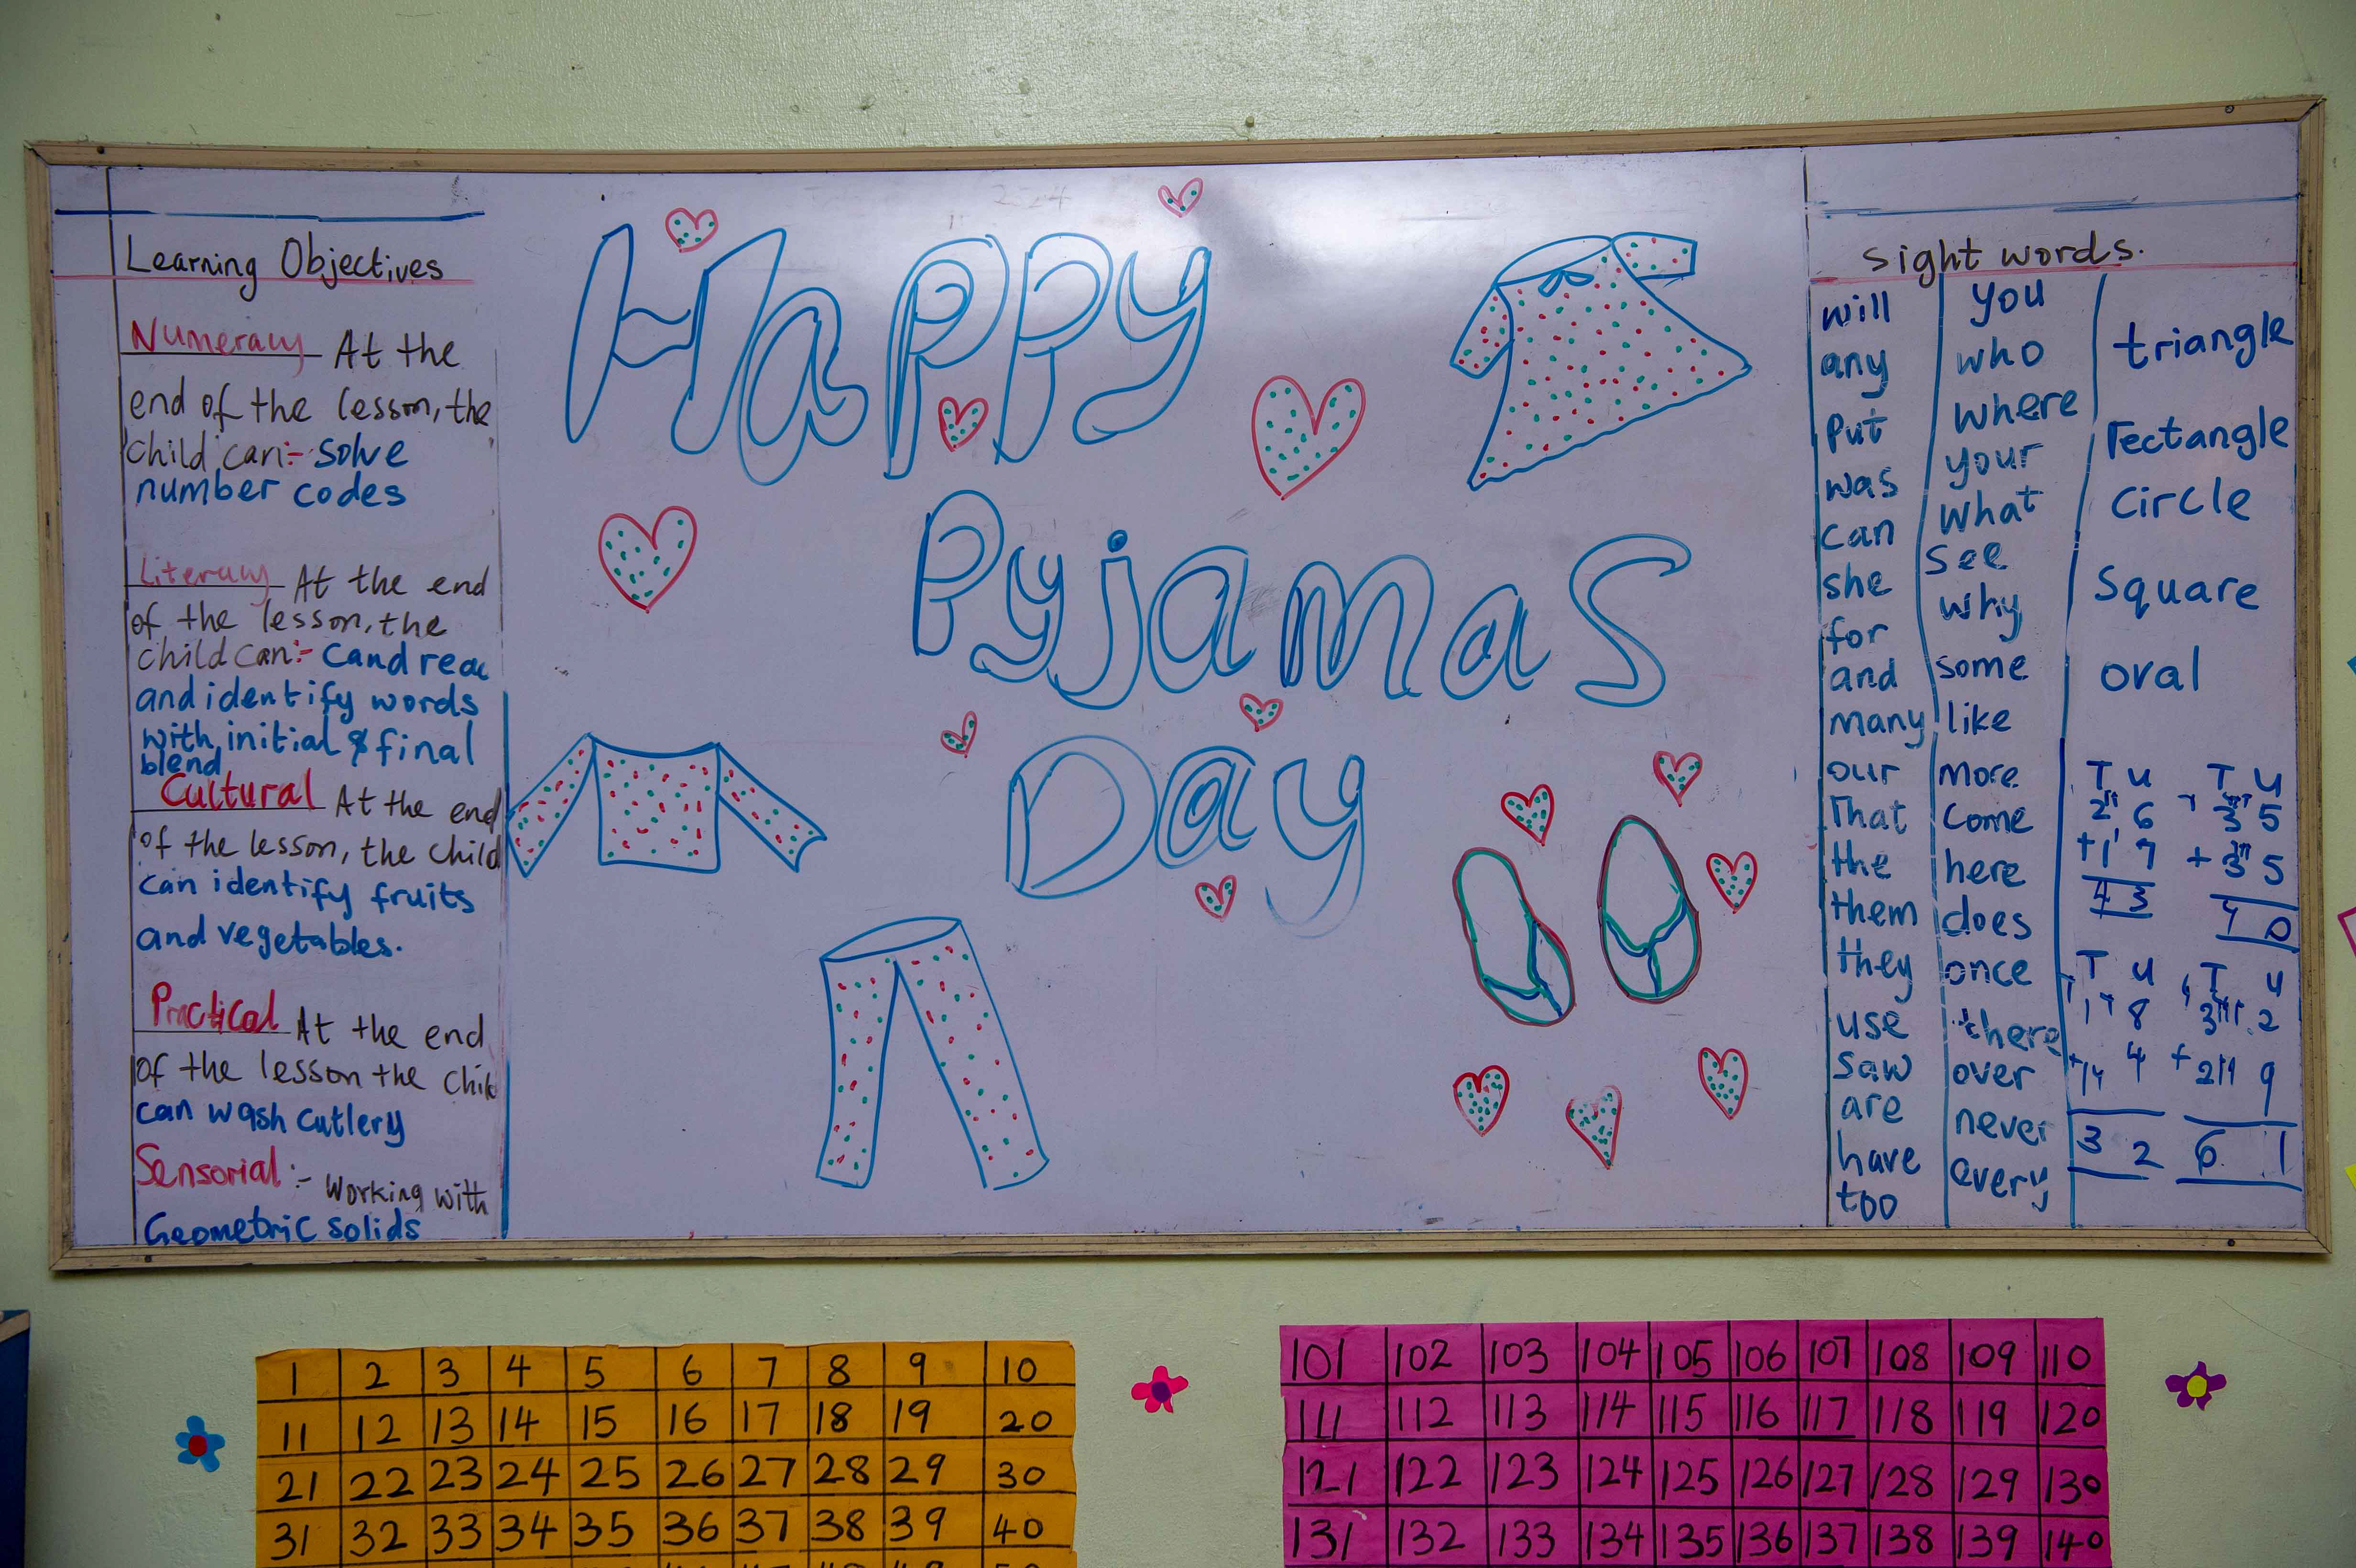 Learning Objectives
Numeracy At the
end of the lesson, the
child can:- solve
number codes
Literacy At the end
of the lesson, the
child can:- cand rea
and identify words
with initial & final
blend
Cultural At the end
of the lesson, the child
can identify fruits
and vegetables.
Practical At the end
of the lesson the chil
can wash cutlery
Sensorial :- Working with
Geometric solids
Happy
Pyjamas
Day
Sight words.
will
any
put
was
can
she
for
and
many
our
That
the
them
they
use
saw
are
have
too
you
who
where
your
what
see
why
some
like
more
come
here
does
once
there
over
never
every
triangle
rectangle
circle
square
oval
T U T U
2 6 3 5
+ 1 7 + 3 5
4 3 0
T U T U
1 8 3 2
+ 4 + 2 9
3 2 6 1
1 2 3 4 5 6 7 8 9 10
11 12 13 14 15 16 17 18 19 20
21 22 23 24 25 26 27 28 29 30
31 32 33 34 35 36 37 38 39 40
101 102 103 104 105 106 107 108 109 110
111 112 113 114 115 116 117 118 119 120
121 122 123 124 125 126 127 128 129 130
131 132 133 134 135 136 137 138 139 140